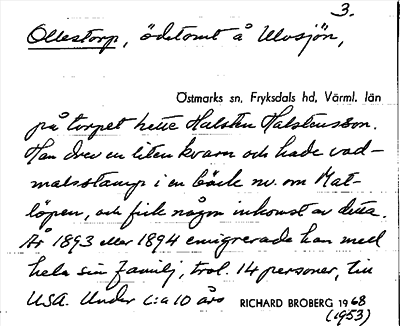 3.
Ollestorp, ödetomt å Ulvsjön,
Östmarks sn, Fryksdals hd, Värml. län
på torpet hette Halsten Halstensson.
Han drev en liten kvarn och hade vad-
malsstamp i en bäck nv. om Mat-
löpen, och fick någon inkomst av detta.
År 1893 eller 1894 emigrerade han med
hela sin familj, trol. 14 personer, till
USA. Under c:a 10 års
RICHARD BROBERG 1968
(1953)